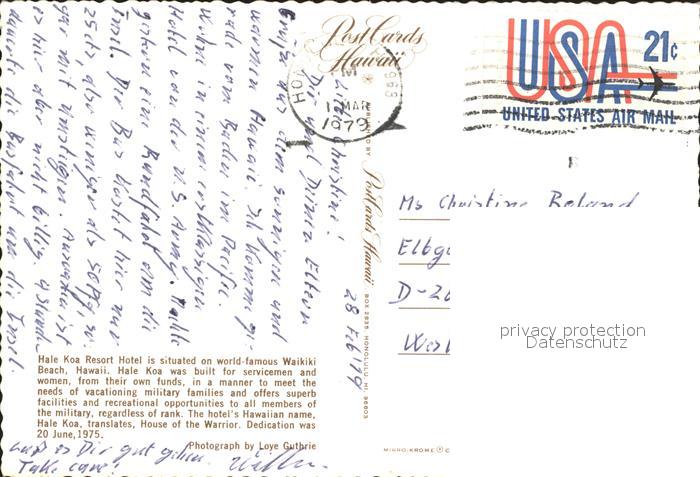 PostCards
Hawaii
USA 21¢
UNITED STATES AIR MAIL
HON
1 MAR
1979
PUBLISHED BY PostCards Hawaii BOX 2835 HONOLULU HI. 96803
28 Feb 79
Liebe Christine!
Dir und Deinen Eltern
Grüße aus dem sonnigen und
warmen Hawaii. Ich komme ge-
rade vom Baden im Pazific.
Wohne in einem erstklassigen
Hotel von der US Army. Mache
gestern eine Rundfahrt um die
Insel. Der Bus kostet hier nur
25 ctz, also weniger als 50 Pfg,
gar nix
ist hier aber nicht billig.
dauert die Busfahrt um die Insel
Ms Christine Roland
Elbg
D-20
West
privacy protection
Datenschutz
Hale Koa Resort Hotel is situated on world-famous Waikiki
Beach, Hawaii. Hale Koa was built for servicemen and
women, from their own funds, in a manner to meet the
needs of vacationing military families and offers superb
facilities and recreational opportunities to all members of
the military, regardless of rank. The hotel's Hawaiian name,
Hale Koa, translates, House of the Warrior. Dedication was
20 June,1975.
Photograph by Loye Guthrie
MICRO-KROME ® C
es Dir gut gehen.
Take care!